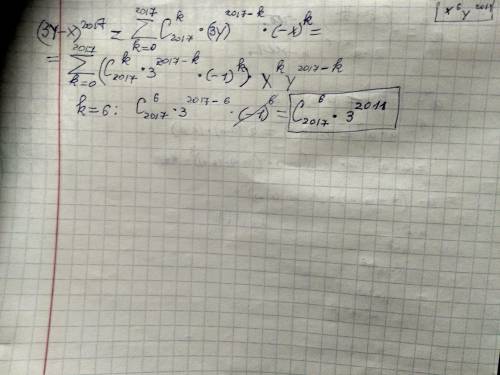 [x⁶y²⁰¹¹]
(3y-x)²⁰¹⁷ = ∑ₖ₌₀²⁰¹⁷ C₂₀₁₇ᵏ · (3y)²⁰¹⁷⁻ᵏ · (-x)ᵏ =
= ∑ₖ₌₀²⁰¹⁷ (C₂₀₁₇ᵏ · 3²⁰¹⁷⁻ᵏ · (-1)ᵏ) · xᵏ y²⁰¹⁷⁻ᵏ
k=6: C₂₀₁₇⁶ · 3²⁰¹⁷⁻⁶ · (-1)⁶ = C₂₀₁₇⁶ · 3²⁰¹¹